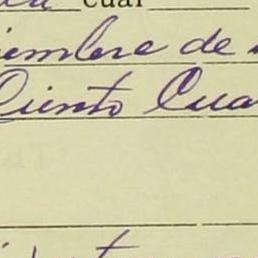 cual
iembre de
Ciento Cua